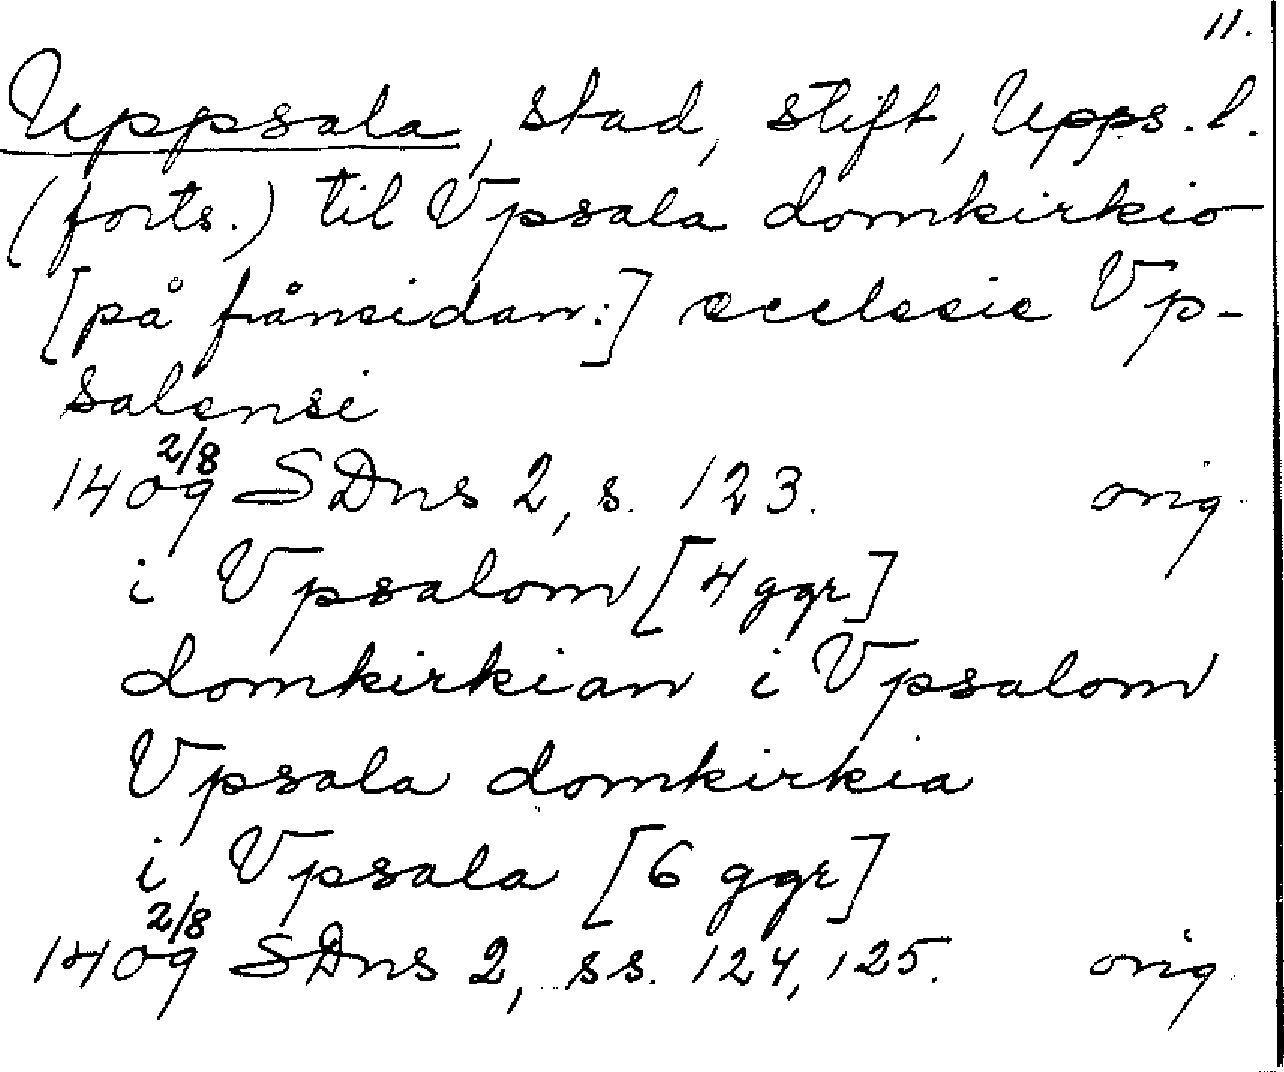 11.
Uppsala, stad, stift, Upps. l.
(forts.) til Vpsala domkirkio
[på frånsidan:] ecclesie Vp-
salensi
1409 2/8 SDns 2, s. 123. orig.
i Vpsalom [4 ggr]
domkirkian i Vpsalom
Vpsala domkirkia
i Vpsala [6 ggr]
1409 2/8 SDns 2, ss. 124, 125. orig.